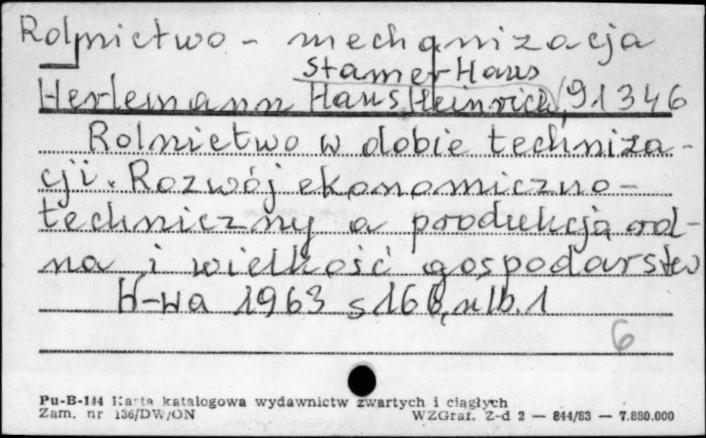 Rolnictwo - mechanizacja
Stamer Hans
Herlemann Hans Heinrich, 91346
Rolnictwo w dobie techniza-
cji. Rozwój ekonomiczno-
techniczny a produkcja rol-
na i wielkość gospodarstw
W-wa 1963 s 168, nlb. 1
6
Pu-B-144 Karta katalogowa wydawnictw zwartych i ciągłych
Zam. nr 136/DW/ON WZGraf. Z-d 2 — 844/83 — 7.880.000